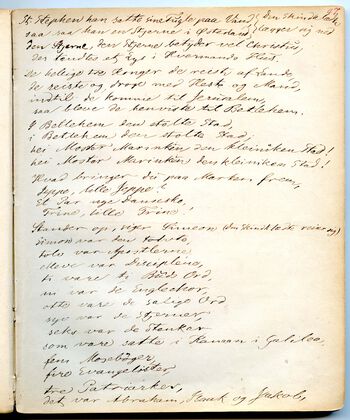 St. Stephen han satte sine paa Vand; den skinde lede
saa saa han en Stjerne i Østerland,
den Stjerne, den Stjerne betyder vel Christus,
der tendtes et Lys i Hvermands Huus.
De hellige tre Konger de reiste af Lande,
de reiste og drog med Heste og Mand,
indtil de komme til Jerusalem,
saa bleve de henviste til Bethlehem.
I Bethlehem den stolte Stad,
i Bethlehem den stolte Stad;
hei Moster Marinken den kleiniken Stad!
hei Moster Marinken den kleiniken Stad!
Hvad bringer du paa Marken frem,
Jeppe, lille Jeppe?
Et Par nye Dansesko,
Trine, lille Trine!
Stander op, siger Simeon
Simon var den tolvte,
tolv var Apostlerne,
elleve var Disciplene,
ti vare ti Buds Ord,
ni var de Englechor,
otte vare de salige Ord
syv var de Stjerner,
seks var de
som vare satte i Kanaan i Galilea,
fem Mosebøger,
fire Evangelister
tre Patriarker,
det var Abraham, Isaak og Jakob,